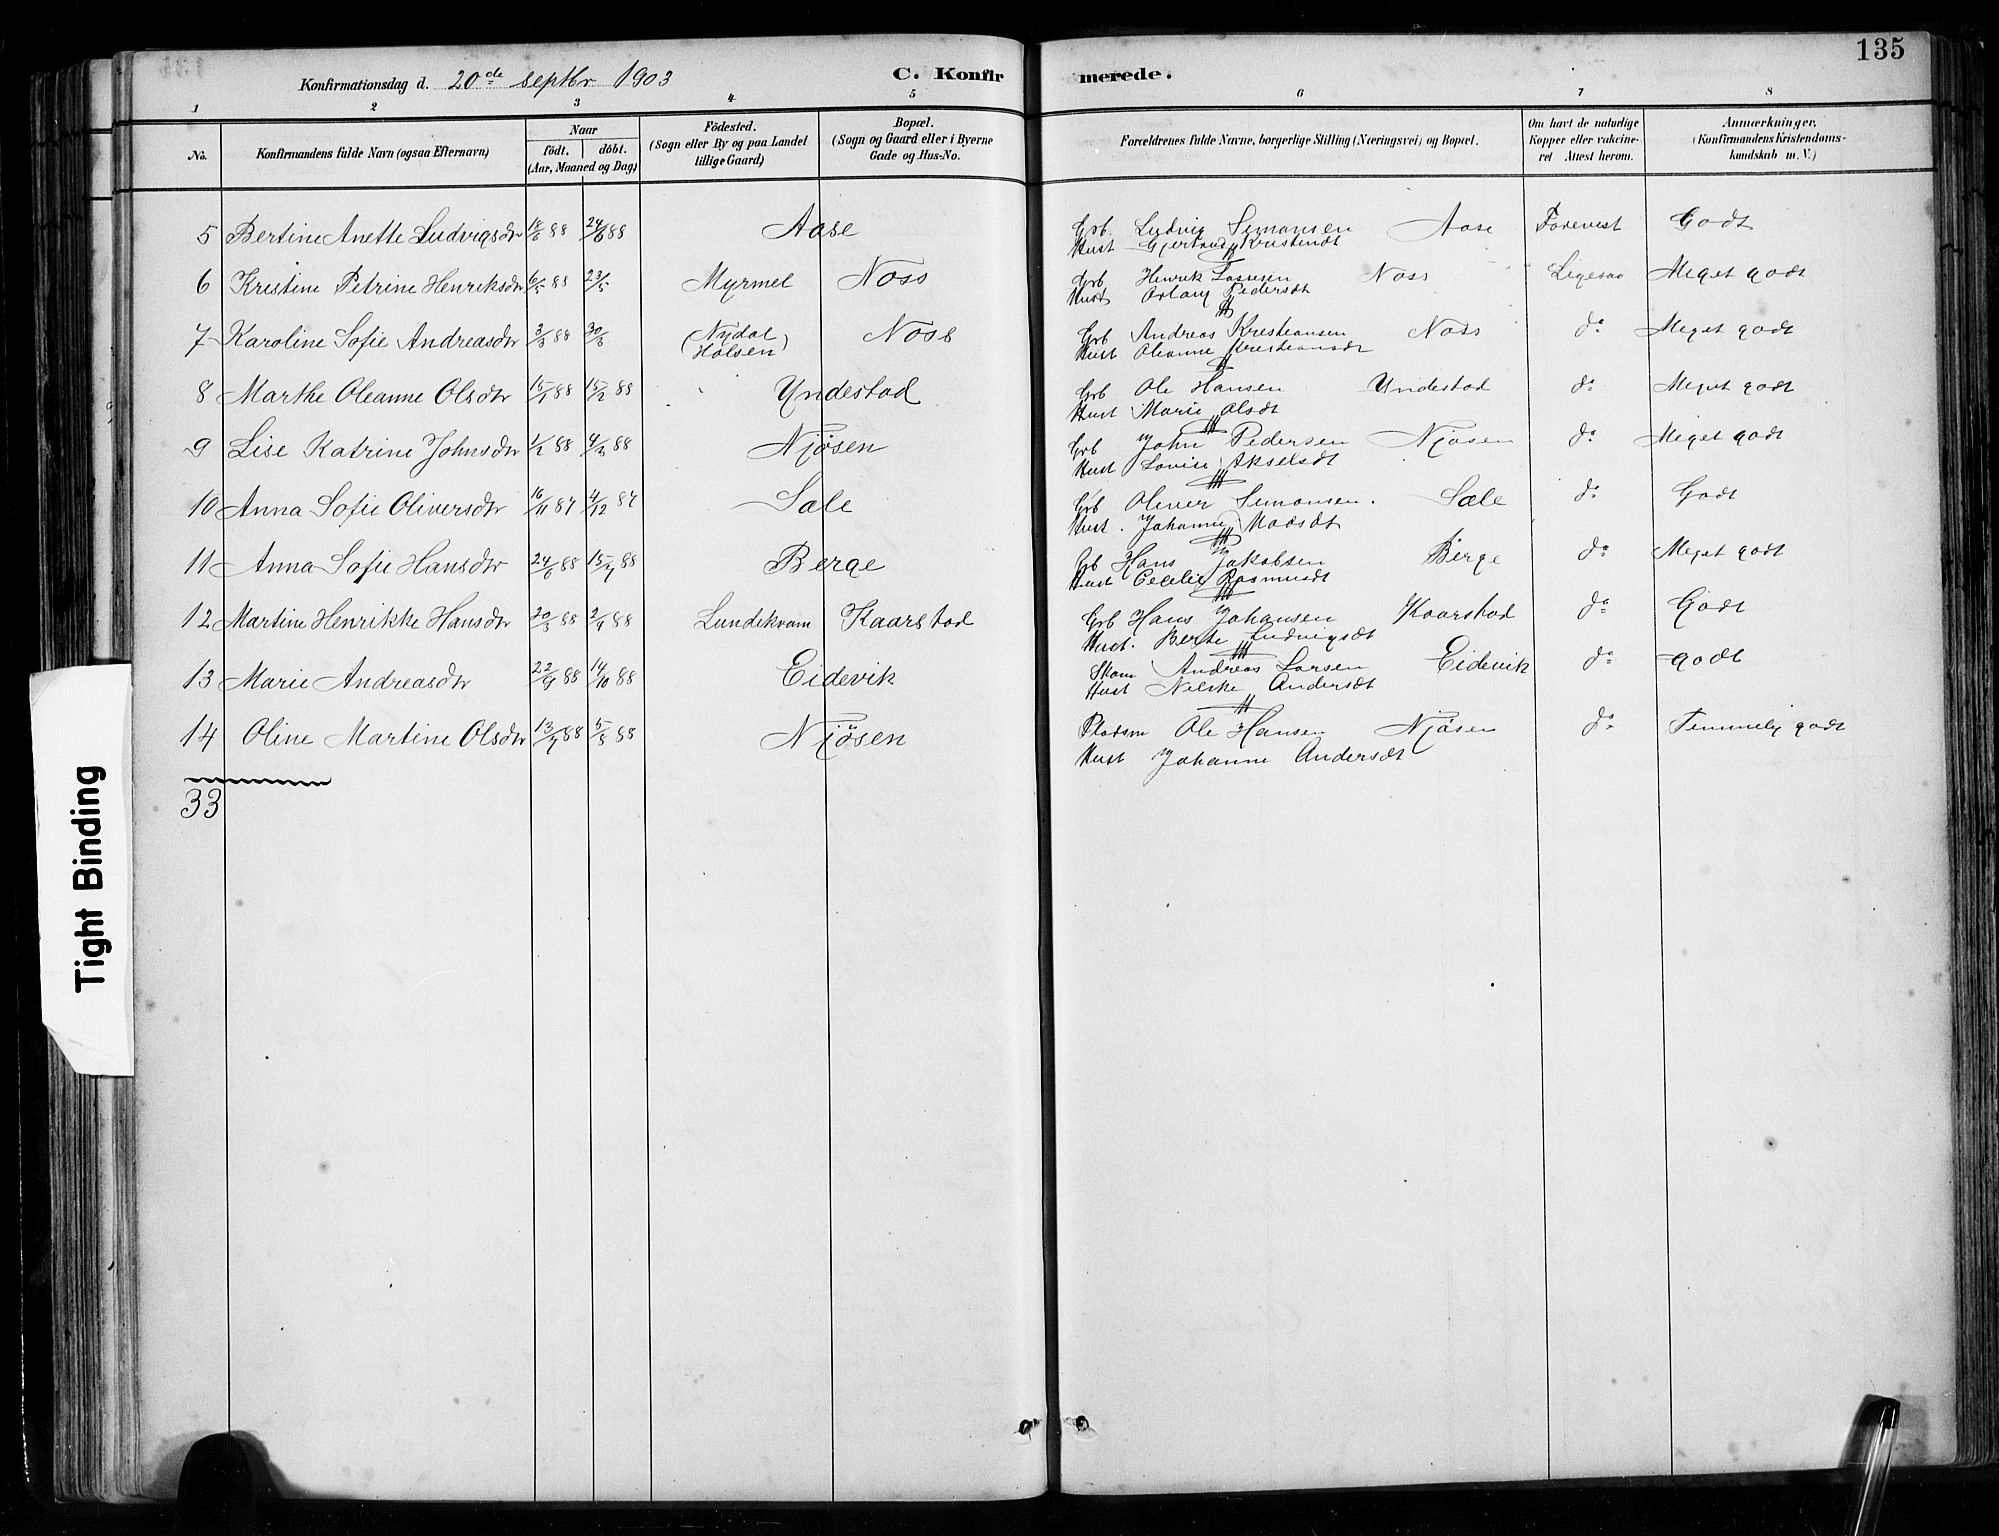 135
Konfirmationsdag d. 20de septbr 1903
C. Konfirmerede.
1 2 3 4 5 6 7 8
No. Konfirmandens fulde Navn (ogsaa Efternavn) Naar födt. döbt. (Aar, Maaned og Dag) Födested. (Sogn eller By og paa Landet tillige Gaard) Bopæl. (Sogn og Gaard eller i Byerne Gade og Hus-No. Forældrenes fulde Navne, borgerlige Stilling (Næringsvei) og Bopæl. Om havt de naturlige Kopper eller vakcineret Attest herom. Anmærkninger, (Konfirmandens Kristendomskundskab m. V.)
5 Bertine Anette Ludvigsdtr 88 24/6 88 Aase Grb. Ludvig Simonsen Aase Forevist Godt
Hust Gjertrud Kristensdt
6 Kristine Petrine Henriksdtr 6/5 88 23/5 Myrmel Noss Grb Henrik Lassesen Noss Ligesaa Meget godt
Hust Aslaug Pedersdt
7 Karoline Sofie Andreasdtr 3/3 88 30/3 (Nydal Holsen) Noss Grb Andreas Kristiansen Noss do Meget godt
Hust Oleanne Kristiansdt
8 Marthe Oleanne Olsdtr 15/1 88 15/2 88 Yndestad Grb Ole Hansen Yndestad do Meget godt
Hust Marie Olsdt
9 Lise Katrine Johnsdtr 88 88 Njøsen Grb John Pedersen Njøsen do Meget godt
Hust Lovise Akselsdt
10 Anna Sofie Oliversdtr 16/11 87 4/12 87 Sæle Grb Oliver Simonsen. Sæle do Godt
Hust. Johanne Madsdt
11 Anna Sofie Hansdtr 24/6 88 15/7 88 Berge Grb Hans Jakobsen Berge do Meget godt
Hust Cecelie Rasmusdt
12 Martine Henrikke Hansdtr 20/3 88 2/4 88 Lundekvam Kaarstad Grb Hans Johansen Kaarstad do Godt
Hust. Berte Ludvigsdt
13 Marie Andreasdtr 22/9 88 14/10 88 Eidevik Skom Andreas Larsen Eidevik do godt
Hust Nilske Andersdt
14 Oline Martine Olsdtr 13/7 88 5/8 88 Njøsen Pladsm Ole Hansen Njøsen do Temmelig godt
Hust Johanne Andersdt
33
Tight Binding